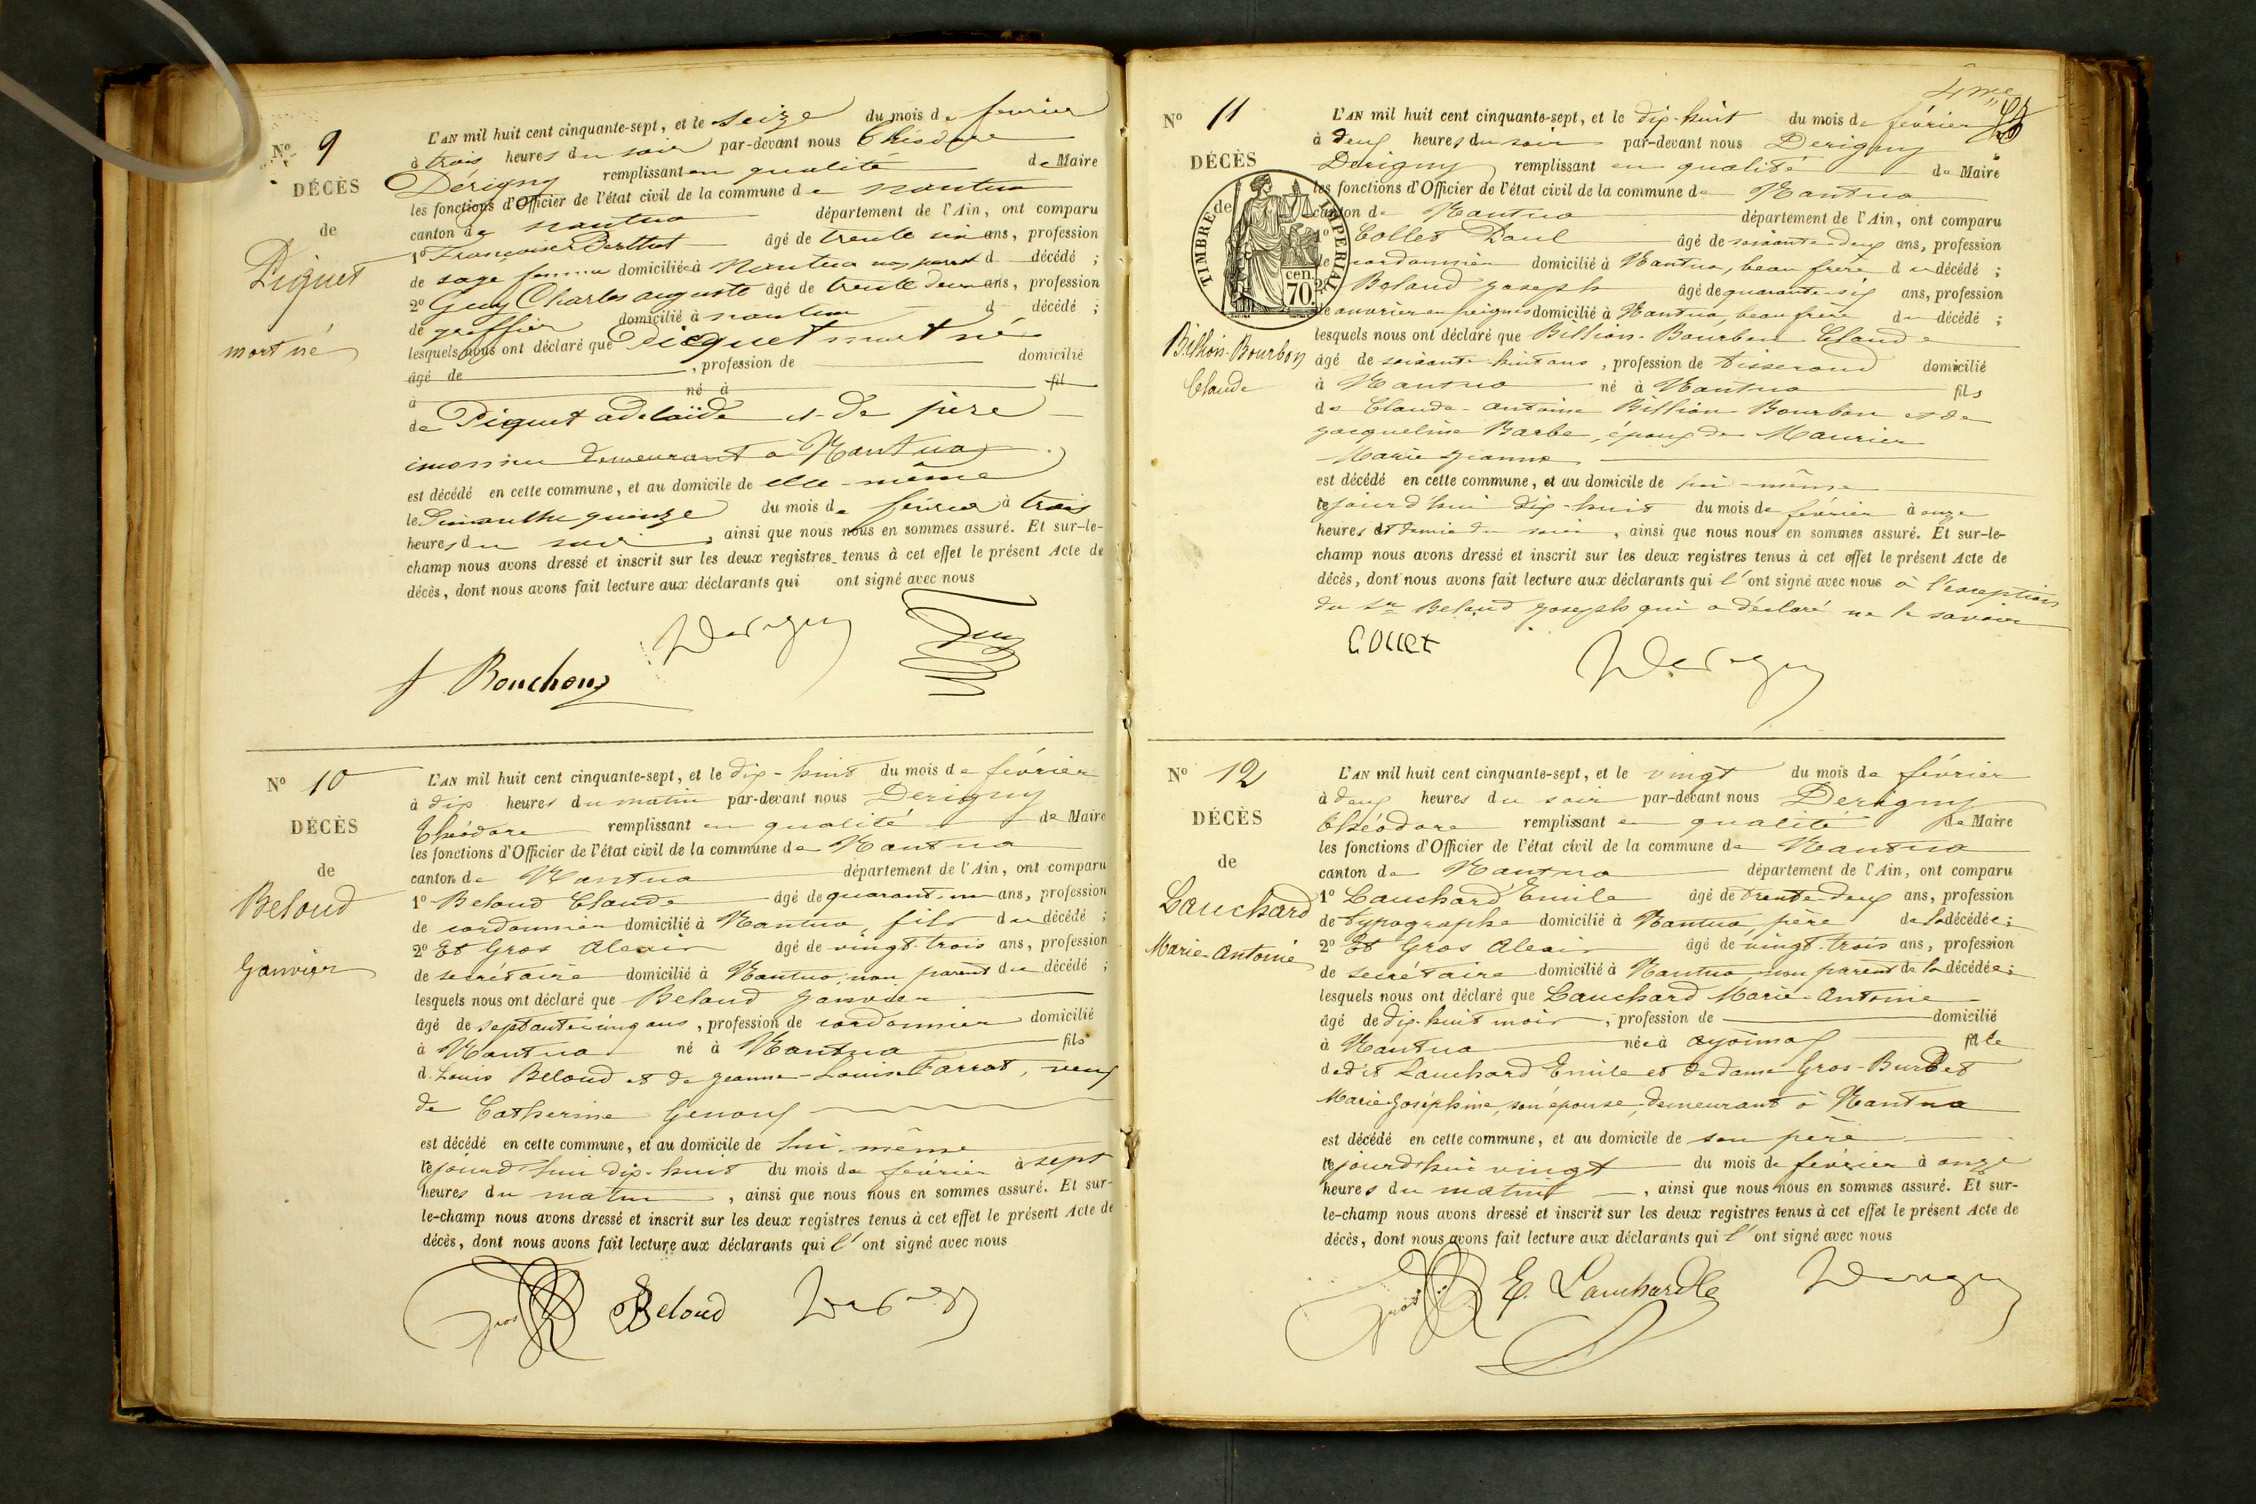 N° 9
DÉCÈS
de
Piquet
mort né
L'AN mil huit cent cinquante-sept, et le seize du mois de fevrier
à trois heures du soir par-devant nous Théodore
Dérigny remplissant en qualité de Maire
les fonctions d'Officier de l'état civil de la commune de nantua
canton de nantua département de l'Ain, ont comparu
1° Françoise Berthet âgé de trente six ans, profession
de sage femme domiciliée à Nantua non parent d décédé ;
2° Guy Charles auguste âgé de trente deux ans, profession
de greffier domicilié à nantua d décédé ;
lesquels nous ont déclaré que Piquet mort né
âgé de , profession de domicilié
à né à fil
de Piquet adelaïde et de père
inconnu demeurant à Nantua
est décédé en cette commune, et au domicile de elle-même
le Dimanche quinze du mois de février à trois
heures du soir, ainsi que nous nous en sommes assuré. Et sur-le-
champ nous avons dressé et inscrit sur les deux registres tenus à cet effet le présent Acte de
décès, dont nous avons fait lecture aux déclarants qui ont signé avec nous
Derigny Guy
f Bouchon
N° 10
DÉCÈS
de
Beloud
Janvier
L'AN mil huit cent cinquante-sept, et le dix-huit du mois de février
à dix heures du matin par-devant nous Derigny
Théodore remplissant en qualité de Maire
les fonctions d'Officier de l'état civil de la commune de Nantua
canton de Nantua département de l'Ain, ont comparu
1° Beloud Claude âgé de quarant-un ans, profession
de cordonnier domicilié à Nantua, fils du décédé ;
2° Et Gros Alexis âgé de vingt-trois ans, profession
de secrétaire domicilié à Nantua, non parent du décédé ;
lesquels nous ont déclaré que Beloud Janvier
âgé de septante cinq ans, profession de cordonnier domicilié
à Nantua né à Nantua fils
d. Louis Beloud et de Jeanne-Louise Farrat, veuf
de Catherine Genoux
est décédé en cette commune, et au domicile de lui-même
cejourd'hui dix-huit du mois de février à sept
heures du matin, ainsi que nous nous en sommes assuré. Et sur-
le-champ nous avons dressé et inscrit sur les deux registres tenus à cet effet le présent Acte de
décès, dont nous avons fait lecture aux déclarants qui l'ont signé avec nous
Gros Beloud Derigny
4me
N° 11
DÉCÈS
de
TIMBRE IMPERIAL
cen.
70.
Billion-Bourbon
Claude
L'AN mil huit cent cinquante-sept, et le dix-huit du mois de février
à Deux heures du soir par-devant nous Derigny
Derigny remplissant en qualité de Maire
les fonctions d'Officier de l'état civil de la commune de Nantua
canton de Nantua département de l'Ain, ont comparu
1° Collet Paul âgé de soixante-deux ans, profession
de cordonnier domicilié à Nantua, beau frère du décédé ;
2° Beloud Joseph âgé de quarante-six ans, profession
de ouvrier en peignes domicilié à Nantua, beau frère du décédé ;
lesquels nous ont déclaré que Billion-Bourbon Claude
âgé de soixante huit ans, profession de Tisserand domicilié
à Nantua né à Nantua fils
de Claude-Antoine Billion-Bourbon et de
Jacqueline Barbe, époux de Maurier
Marie Jeanne
est décédé en cette commune, et au domicile de lui-même
cejourd'hui dix-huit du mois de février à onze
heures et demie du soir, ainsi que nous nous en sommes assuré. Et sur-le-
champ nous avons dressé et inscrit sur les deux registres tenus à cet effet le présent Acte de
décès, dont nous avons fait lecture aux déclarants qui l'ont signé avec nous à l'exception
du sr Beloud Joseph qui a déclaré ne le savoir
COLLET
Derigny
N° 12
DÉCÈS
de
Lauchard
Marie-Antoinie
L'AN mil huit cent cinquante-sept, et le vingt du mois de février
à deux heures du soir par-devant nous Derigny
Théodore remplissant en qualité de Maire
les fonctions d'Officier de l'état civil de la commune de Nantua
canton de Nantua département de l'Ain, ont comparu
1° Lauchard Emile âgé de trente deux ans, profession
de typographe domicilié à Nantua, père de la décédée ;
2° Et Gros Alexis âgé de vingt-trois ans, profession
de secrétaire domicilié à Nantua, non parent de la décédée ;
lesquels nous ont déclaré que Lauchard Marie-Antoinie
âgé de dix-huit mois, profession de domicilié
à Nantua née à Oyonnax fille
de dit Lauchard Emile et de dame Gros-Burdet
Marie Joséphine, son épouse, demeurant à Nantua
est décédé en cette commune, et au domicile de son père
cejourd'hui vingt du mois de février à onze
heures du matin, ainsi que nous nous en sommes assuré. Et sur-
le-champ nous avons dressé et inscrit sur les deux registres tenus à cet effet le présent Acte de
décès, dont nous avons fait lecture aux déclarants qui l'ont signé avec nous
Gros E. Lauchard Derigny